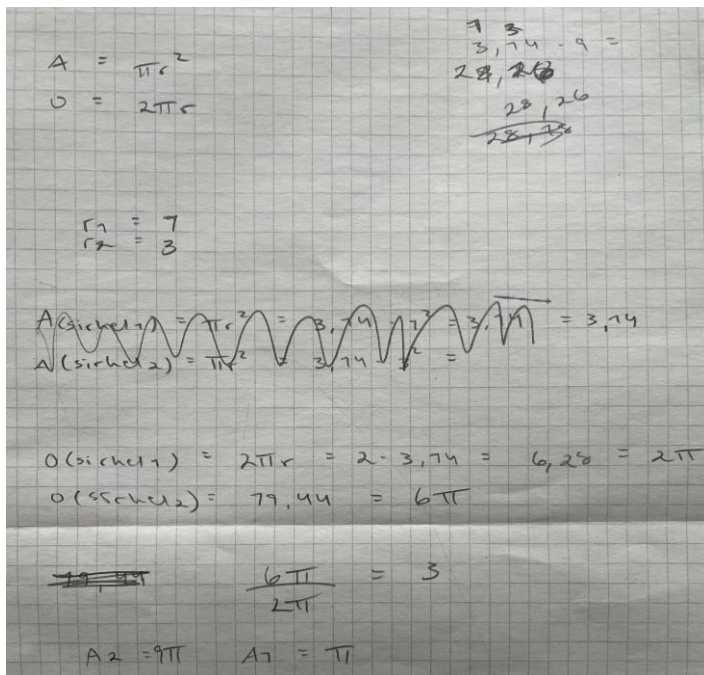 1 3
3,14 · 9 =
A = πr²
O = 2πr
28,26
r1 = 1
r2 = 3
A(sirkel1) = πr² = 3,14 · 1² = 3,14 = 3,14
A(sirkel2) = πr² = 3,14 3² =
O(sirkel1) = 2πr = 2 · 3,14 = 6,28 = 2π
O(sirkel2) = 19,44 = 6π
6π / 2π = 3
A2 = 9π A1 = π